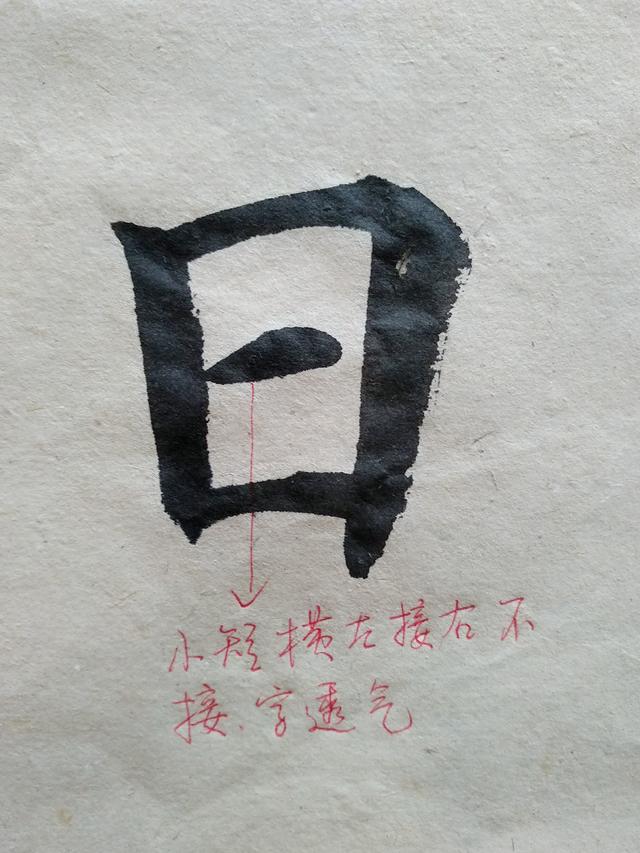 日
小短横左接右不
接、字透气